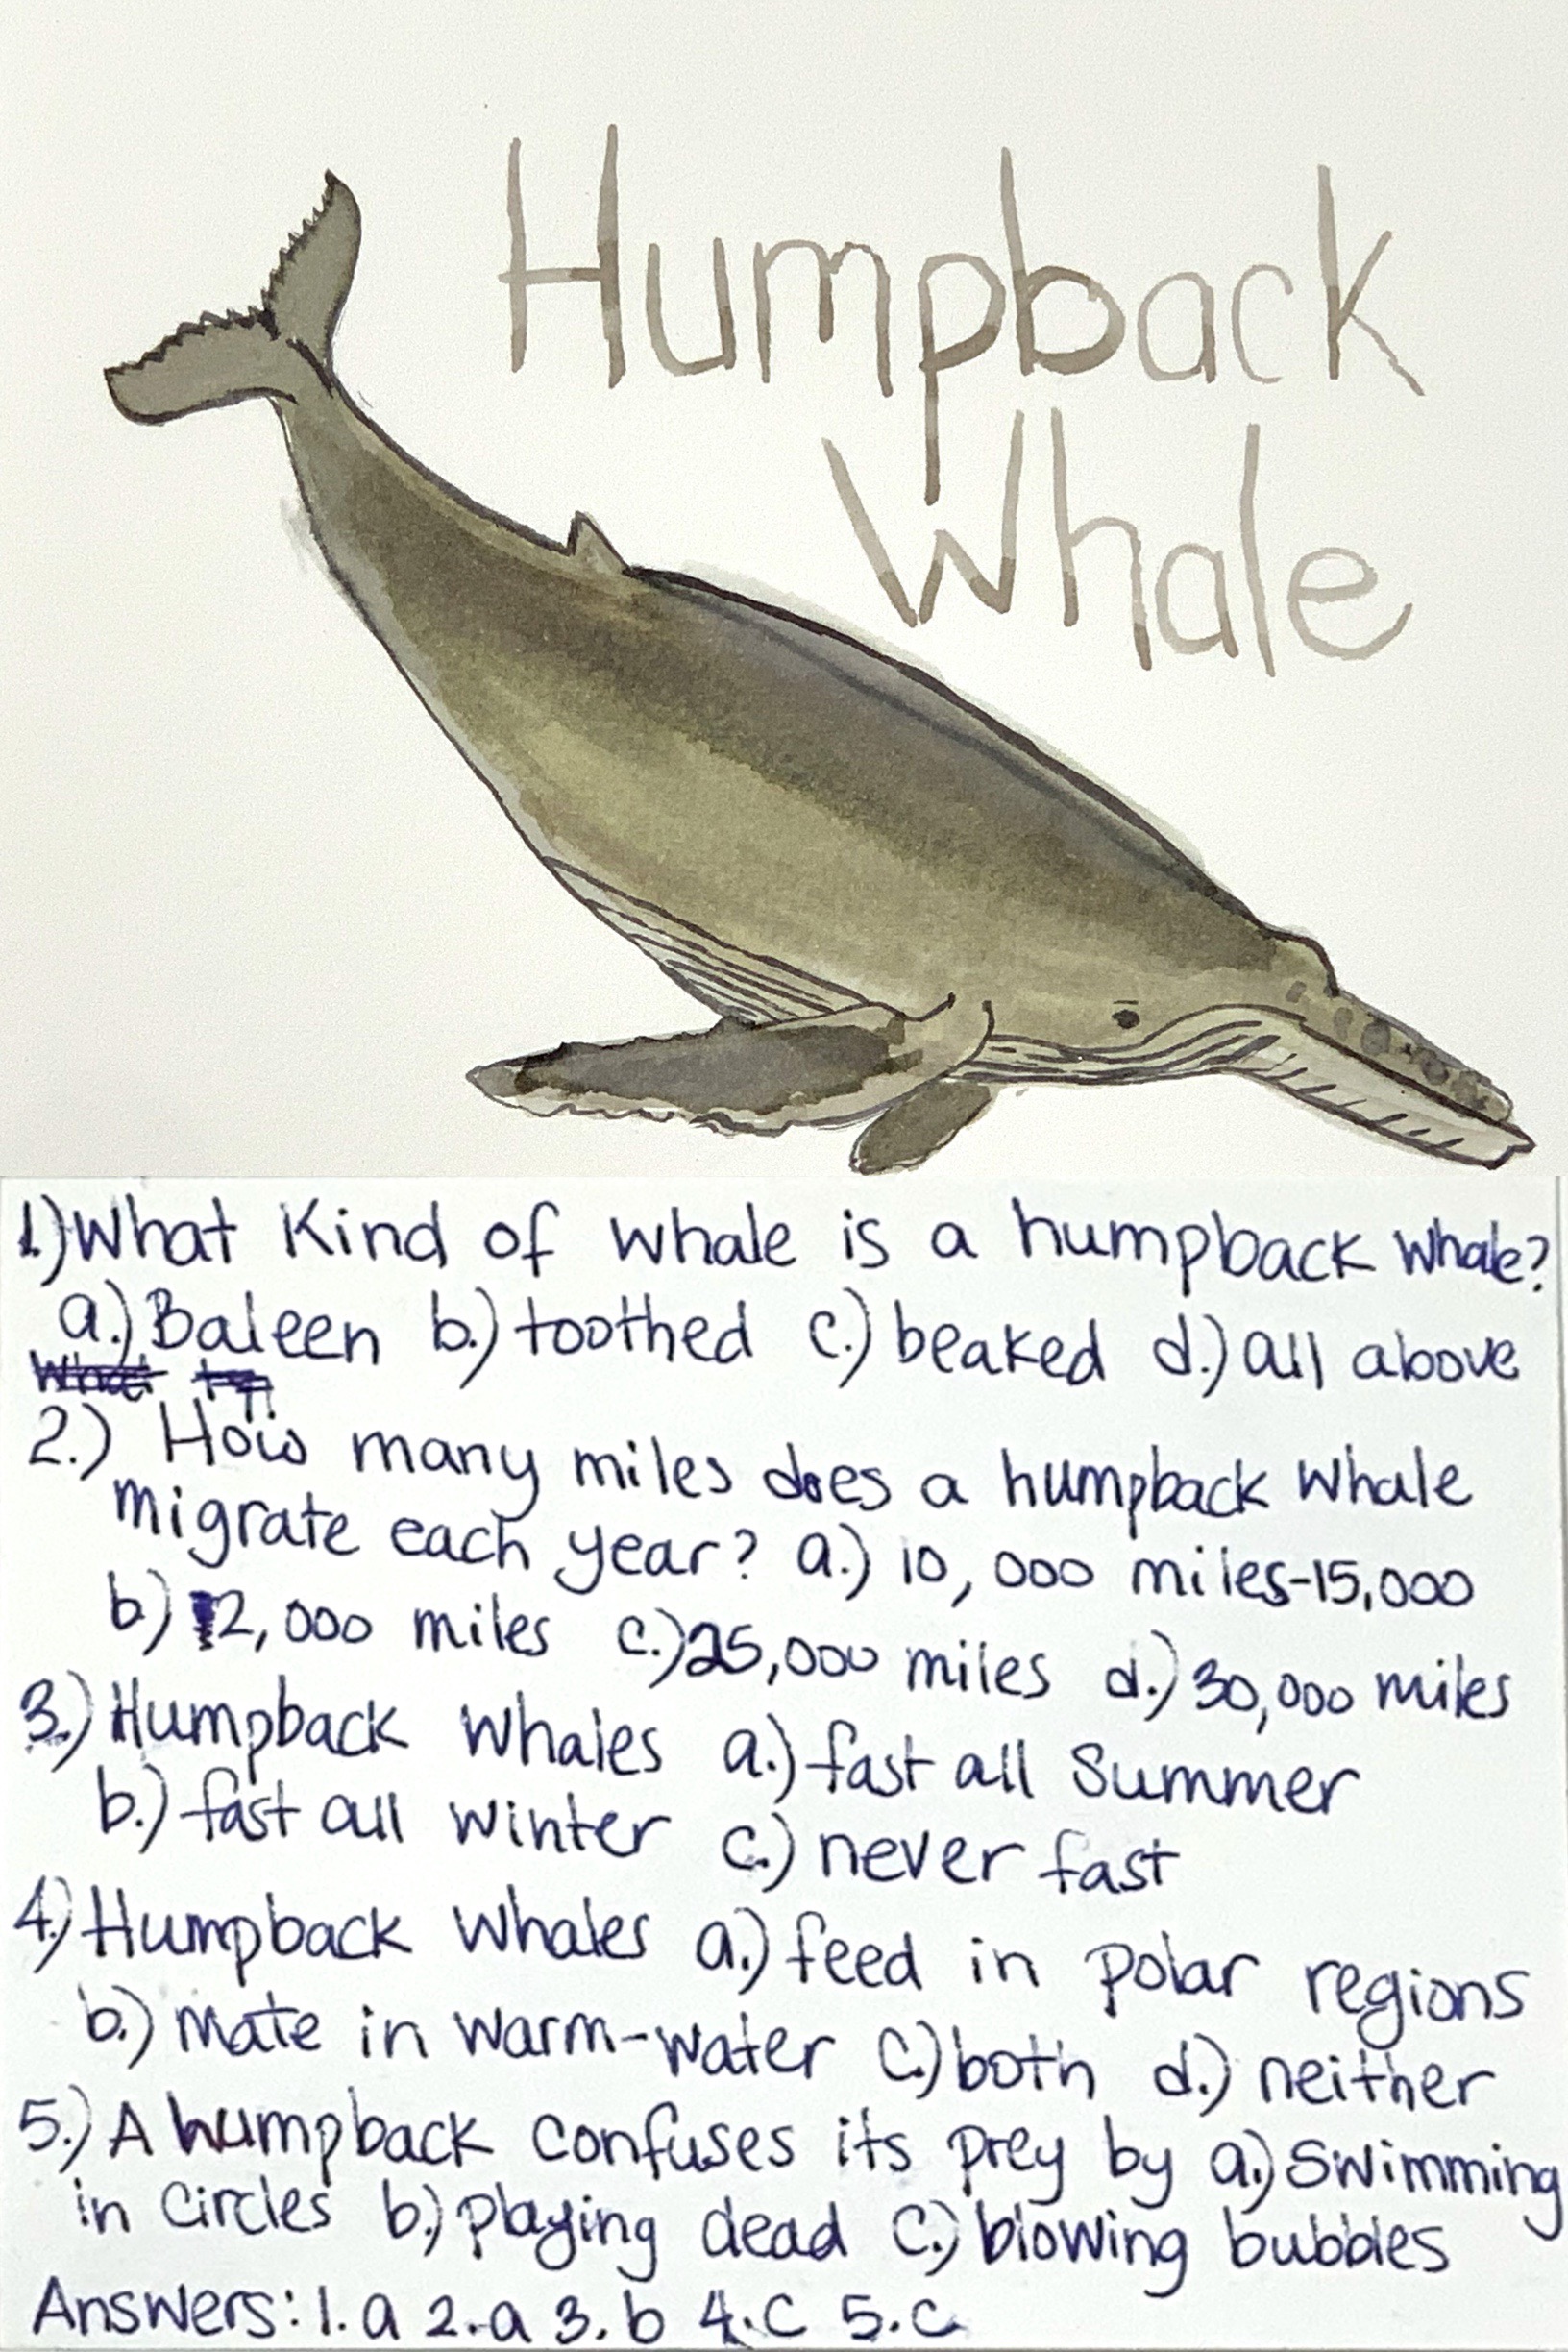 Humpback
Whale
1.) What Kind of whale is a humpback whale?
a.) Baleen b.) toothed c.) beaked d.) all above
2.) How many miles does a humpback whale
migrate each year? a.) 10,000 miles-15,000
b.) 2,000 miles c.) 25,000 miles d.) 30,000 miles
3.) Humpback whales a.) fast all Summer
b.) fast all winter c.) never fast
4.) Humpback whales a.) feed in polar regions
b.) mate in warm-water c.) both d.) neither
5.) A humpback confuses its prey by a.) Swimming
in circles b.) playing dead c.) blowing bubbles
Answers: 1. a 2. a 3. b 4. c 5. c